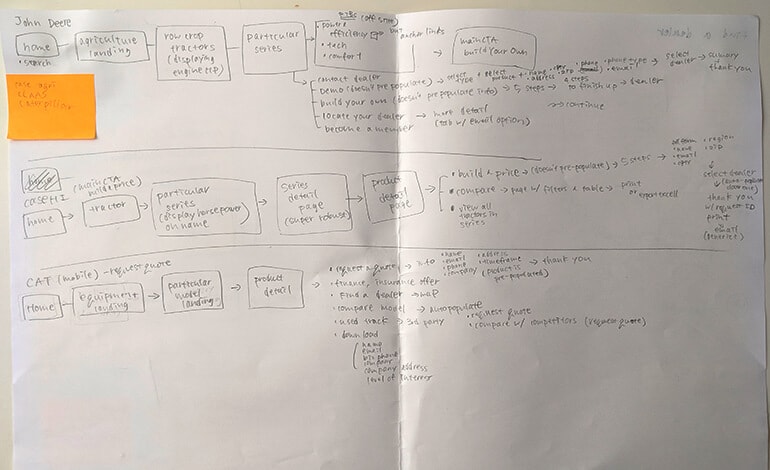 John Deere
home
• search
agriculture
landing
row crop
tractors
(displaying
engine HP)
particular
series
• power &
efficiency
• tech
• comfort
anchor links
main CTA
build your own
• contact dealer
• Demo (doesn't prepopulate)
• build your own (doesn't prepopulate info) → 5 steps → to finish up → dealer
• locate your dealer → more detail
(tab w/ email options)
• become a member
→ select
product
• name
• address
• phone
4 steps
• phone type
• email
→ select
dealer → summary
thank you
→ continue
case agri
CLAAS
caterpillar
home
CASE IH
(main CTA
build & price)
home
tractor
particular
series
(display horsepower
on name)
series
detail
page
(super robust)
product
detail
page
• build & price → (doesn't pre-populate) → 5 steps →
• name
• email
• region
• zip
select dealer
thank you
w/ request ID
print
email
(generic)
• compare → page w/ filters & table → print
or export excell
• view all
tractors in
series
CAT (mobile) - request quote
Home
Equipment
landing
particular
model
landing
product
detail
• request a quote → info
• name
• email
• phone
• company
• address
• timeframe
(product is
pre-populated)
→ thank you
• finance, insurance offer
• Find a dealer → map
• compare model → autopopulate
• request quote
• compare w/ competitors (request quote)
• used track → 3rd party
• download
name
email
biz phone
company
company address
level of interest